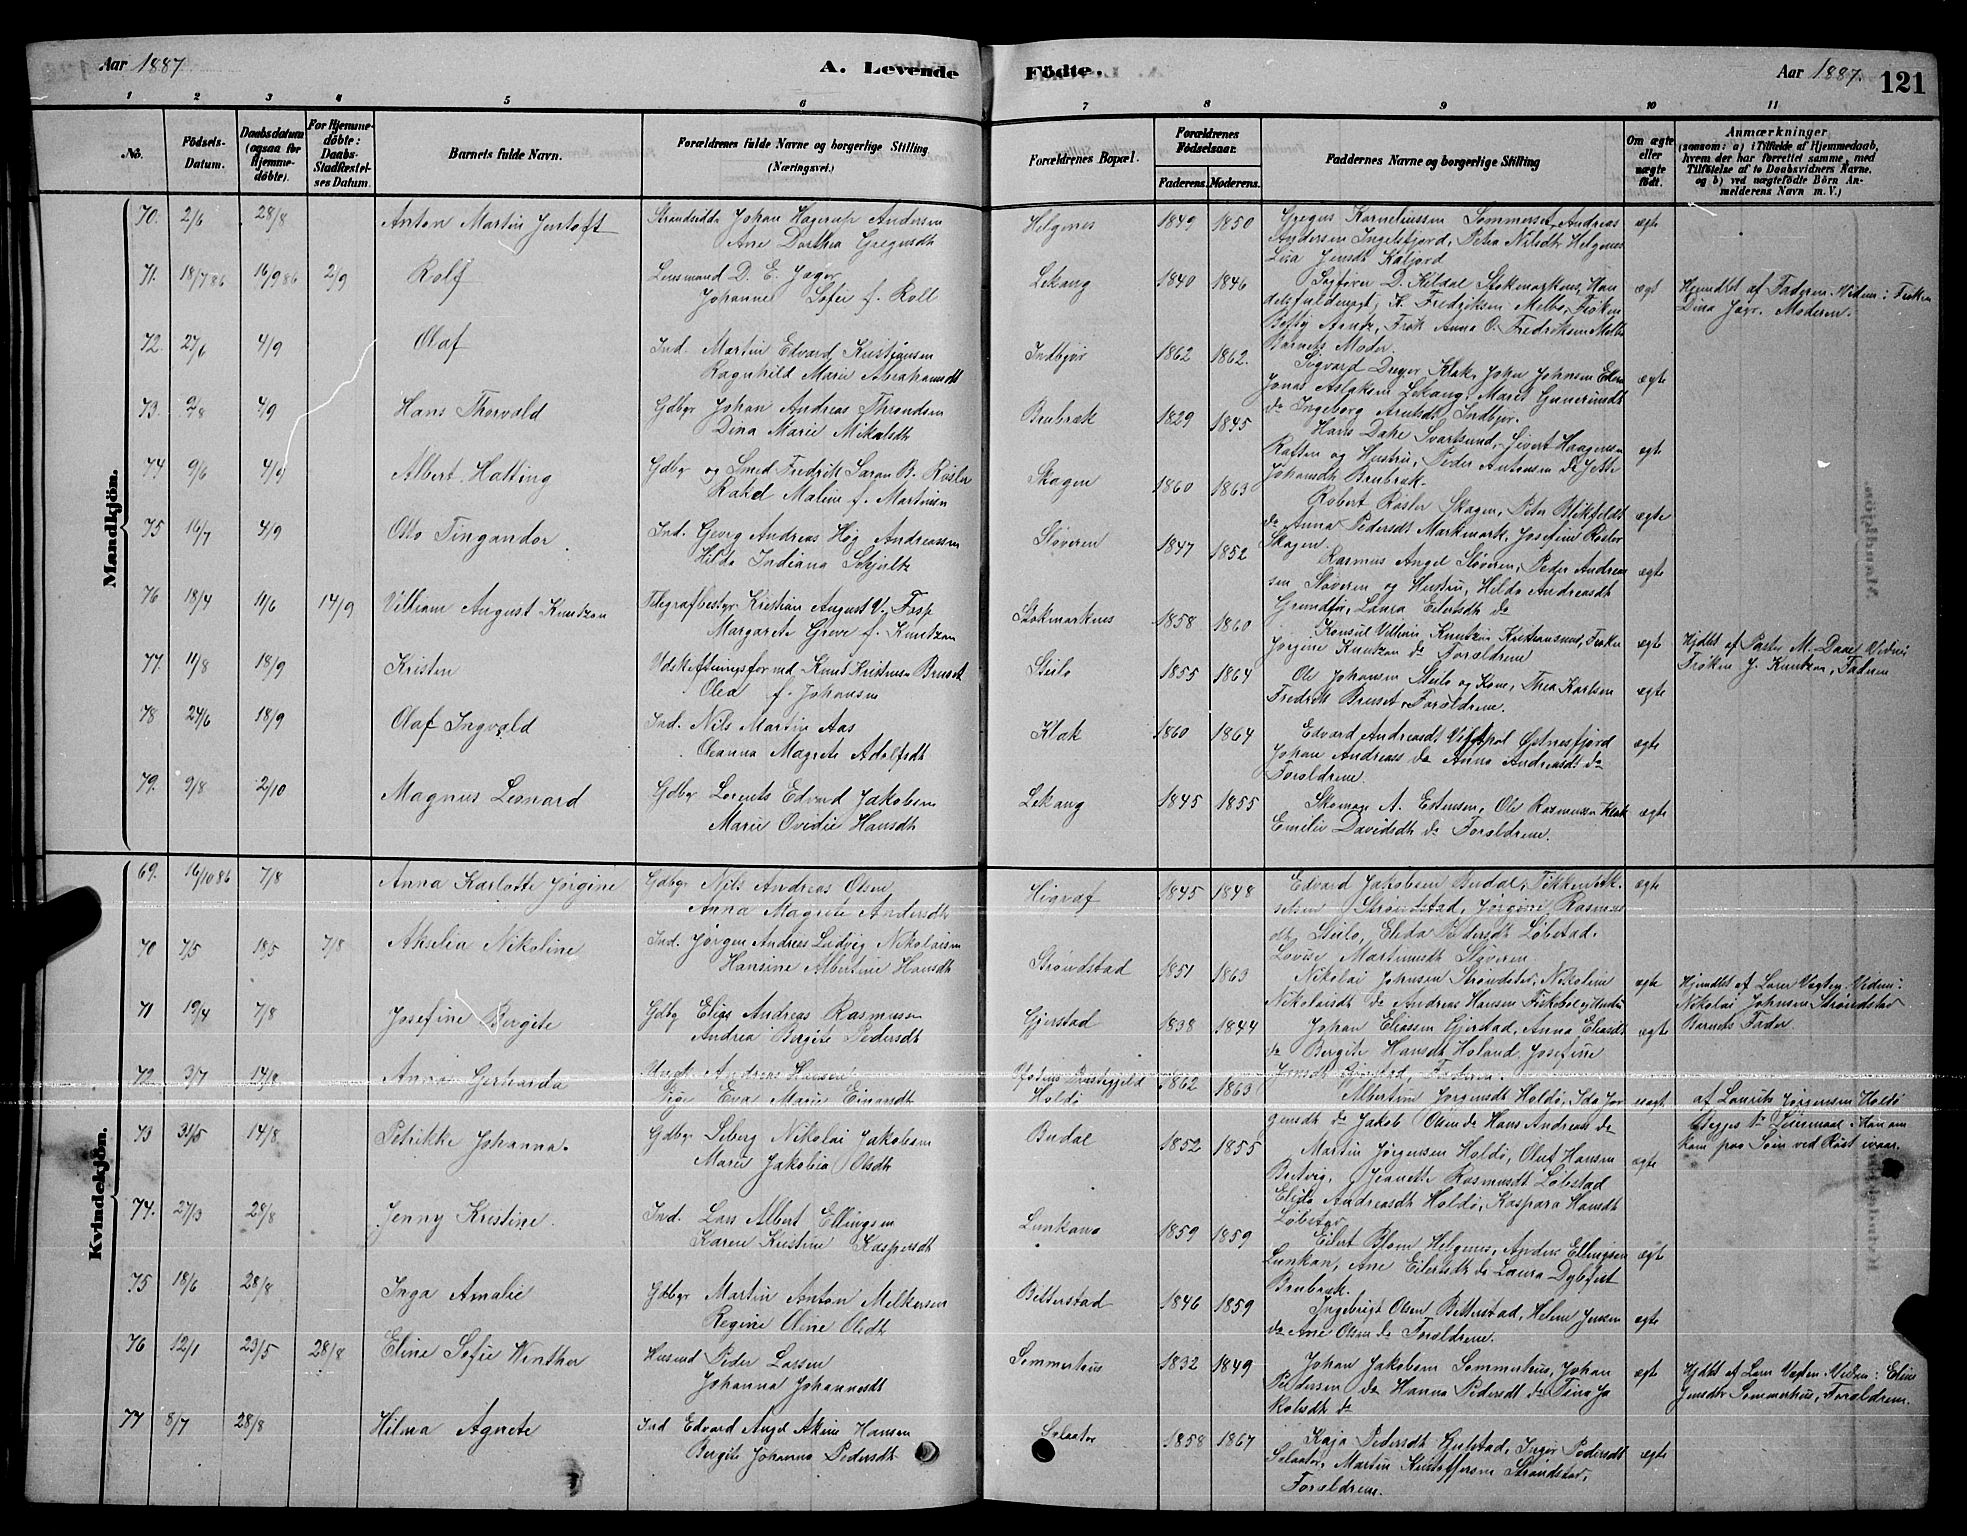 Aar 1887.
A. Levende
Födte.
Aar 1887.
121
1 2 3 4 5 6 7 8 9 10 11
No.
Födsels-Datum.
Daabsdatum (ogsaa for Hjemmedöbte).
For Hjemmedöbte: Daabs-Stadfæstelses Datum.
Barnets fulde Navn.
Forældrenes fulde Navne og borgerlige Stilling (Næringsvei.)
Forældrenes Bopæl.
Forældrenes Födselsaar.
Faderens. Moderens.
Faddernes Navne og borgerlige Stilling
Om ægte eller uægte födt.
Anmærkninger
(saasom: a) i Tilfælde af Hjemmedaab, hvem der har forrettet samme, med Tilföielse af to Daabsvidners Navne, og b) ved uægtefödte Börn Anmelderens Navn m. V.)
Mandkjön.
70. 2/6 28/8 Anton Martin Jentoft
Strandsidder Johan Hagerup Andersen
Ane Dorthea Gregusdt
Helgenes 1849 1850
Gregus Korneliussen Sommerset, Andreas
Andersen Ingelsfjord, Petra Nilsdt Helgenes
Lisa Jensdt Kaljord
ægte
71. 18/7 86 16/9 86 2/9 Rolf
Lensmand D. E. Jæger
Johanne Sofie f. Roll
Lekang 1840 1846
Sagfører D. Keldal Stokmarknes, Han
delsfuldmægt. K. Fredriksen Melbo, Frøken
Anna O. Fredriksen Melbo
Barnets Moder.
ægt
Hjemdbt af Faderen. Vidner: Frøken
Dina Jæger. Moderen.
72. 27/6 4/9 Olaf
Ind. Martin Edvard Kristiansen
Ragnhild Marie Abrahamsdt
Indbjør 1862 1862.
Sigvard Dreyer Klak, Johan Johnsen
Jonas Aslaksen Lekang, Maret Guneriusdt
do Ingeborg Arntsdt Indbjør.
ægte
73. 9/8 4/9 Hans Thorvald
Gdbgr Johan Andreas Throndsen
Dina Marie Mikalsdt
Brubræk 1829 1845
Hans Dahl Svartsund, Sivert Haagensen
Raften og Hustru, Peder Antonsen do Jette
Johansdt Brubræk.
ægte
74 9/6 4/9 Albert Hatting
Gdbgr og Smed Fredrik Saran B. Røsler
Rakel Maline f. Martinsen
Skagen 1860 1863
Robert Røsler Skagen, Peter Blikfeldt
do Anna Pedersdt Markmark, Josefine Røsler
Skagen.
ægte
75 16/7 4/9 Otto Tingandor
Ind. Georg Andreas Høg Andreassen
Hilda Indiana Schjults
Støveren 1847 1852
Rasmus Angel Støveren, Peder Andreas
sen Støveren og Hustru, Hilda Andreasdt
Grundfør, Laura Eilertsdt do
ægte
76 18/4 11/6 14/9 Villiam August Knutzon
Telegrafbestyr Kristian August V. Fosp
Margarete Greve f. Knutzon
Stokmarknes 1858 1860
Konsul Villiam Knutzon Kristiansund, Frøken
Jørgine Knutzon do Forældrene
ægte
Hjdbt af Pastor M. Daae Vidner
Frøken J. Knutzon, Faderen
77. 11/8 18/9 Kristen
Udskiftningsformd Knut Kristensen Bruset
Olea f. Johansen
Steilo 1855 1864
Ole Johansen Steilo og Kone, Thea Karlsen
Fredrik Bruset, Forældrene.
ægte
78 24/6 18/9 Olaf Ingvald
Ind. Nils Martin Aas
Oleanna Magrete Adolfsdt
Klak 1860 1864
Edvard Andreasdt Østnesfjord
Johan Andreas do Anna Andreasdt do
Forældrene.
ægte
79. 9/8 2/10 Magnus Leonard
Gdbgr Lorents Edvard Jakobsen
Marie Ovidie Hansdt
Lekang 1845 1855
Skomager A. Estensen, Ole Rasmussen Klak
Emilie Davidsdt do Forældrene.
ægte
Kvindekjön.
69. 16/10 86 7/8 Anna Karlotte Jørgine
Gdbgr Nils Andreas Olsen
Anna Magrete Andersdt
Higvaf 1845 1848
Edvard Jakobsen Budal,
Strøndstad, Jørgine Rasmus
dt Steilo, Elida Pedersdt Løbstad.
Lovise Martinusdt Støveren
ægte
70 7/5 19/5 7/8 Akselia Nikoline
Ind. Jørgen Andreas Ludvig Nikolaisen
Hansine Albertine Hansdt
Strøndstad 1851 1863
Nikolai Johnsen Strøndstad, Nikoline
Nikolaisdt do Andreas Hansen Fiskebøl
ægte
Hjemdbt af Lærer Vogten. Vidner:
Nikolai Johnsen Strøndstad
Barnets Fader.
71 19/4 7/8 Josefine Bergite
Gdbg Elias Andreas Rasmussen
Andrea Bergite Pedersdt
Gjerstad 1838 1844
Johan Eliassen Gjerstad, Anna Eliasdt
do Bergite Hansdt Holand, Josefine
Jensdt Gjerstad, Faderen.
ægte
72 3/7 14/8 Anna Gerharda
Ungk. Andreas Hansen
Pige Eva Marie Einarsdt
Præstegjeld
Holdø 1862 1863
Albertine Jørgensdt Holdø, Ida Jør
gensdt do Jakob Olsen do Hans Andreas do
uægt.
af Laurits Jørgensen Holdø
Begges 1ste Leiermaal. Han om
kom paa Søen ved Røst ivaar.
73 31/5 14/8 Petrikke Johanna.
Gdbgr Seberg Nikolai Jakobsen
Marie Jakobia Olsdt
Budal 1852 1855
Martin Jørgensen Holdø, Oluf Hansen
Breivig, Jeanette Rasmusdt Løbstad
Elida Andreasdt Holdø, Kaspara Hansdt
Løbstad
ægte
74. 27/3 28/8 Jenny Kristine.
Ind. Lars Albert Ellingsen
Karen Kristine Kaspersdt
Lunkano 1859 1859
Eilert Blom Helgenes, Anders Ellingsen
Lunkan, Ane Eilertsdt do Laura Dybfest
Brubræk.
ægte
75 18/6 28/8 Inga Amalie
Gdbgr Martin Anton Melkersen
Regine Oline Olsdt
Bitterstad 1846 1859
Ingebrigt Olsen Bitterstad, Helene Jensen
do Ane Olsen do Forældrene.
ægte
76 12/1 23/5 28/8 Eline Sofie Winther
Husmd Peder Larsen
Johanna Johannesdt
Sommerhus 1832 1849
Johan Jakobsen Sommerhus, Johan
Pedersen do Hanna Pedersdt do Tina Ja
kobsdt do
ægt
Hjdbt af Lærer Vogten. Vidner: Elias
Jensdt Sommerhus, Forældrene.
77 8/7 28/8 Hilma Agnete
Ind Edvard Angel Akim Hansen
Bergite Johanna Pedersdt
Selaater 1858 1867
Kaja Pedersdt Gjelstad, Inger Pedersdt
Selaater, Martin Kristoffersen Strøndstad,
Forældrene.
ægte